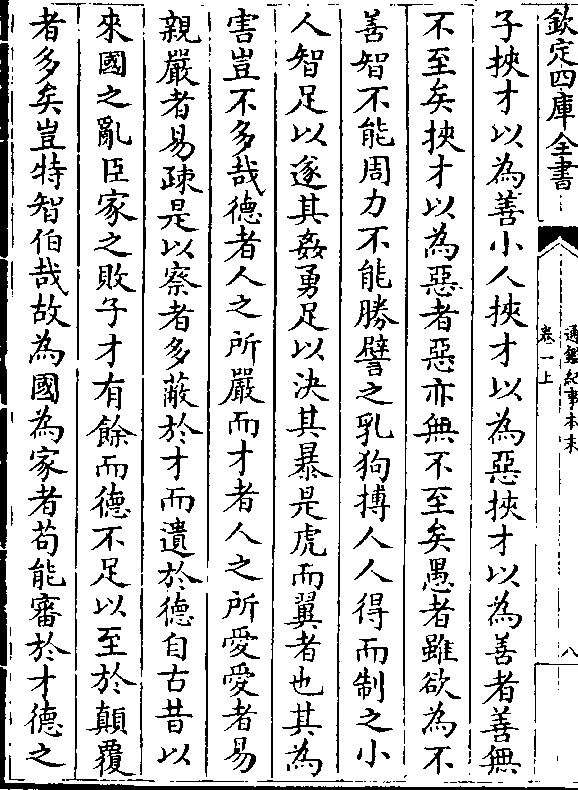 欽定四庫全書
通鑑紀事本末
卷一上
八
子挾才以為善小人挾才以為惡挾才以為善者善無
不至矣挾才以為惡者惡亦無不至矣愚者雖欲為不
善智不能周力不能勝譬之乳狗搏人人得而制之小
人智足以遂其姦勇足以決其暴是虎而翼者也其為
害豈不多哉德者人之所嚴而才者人之所愛愛者易
親嚴者易疎是以察者多蔽於才而遺於德自古昔以
來國之亂臣家之敗子才有餘而德不足以至於顛覆
者多矣豈特智伯哉故為國為家者苟能審於才德之